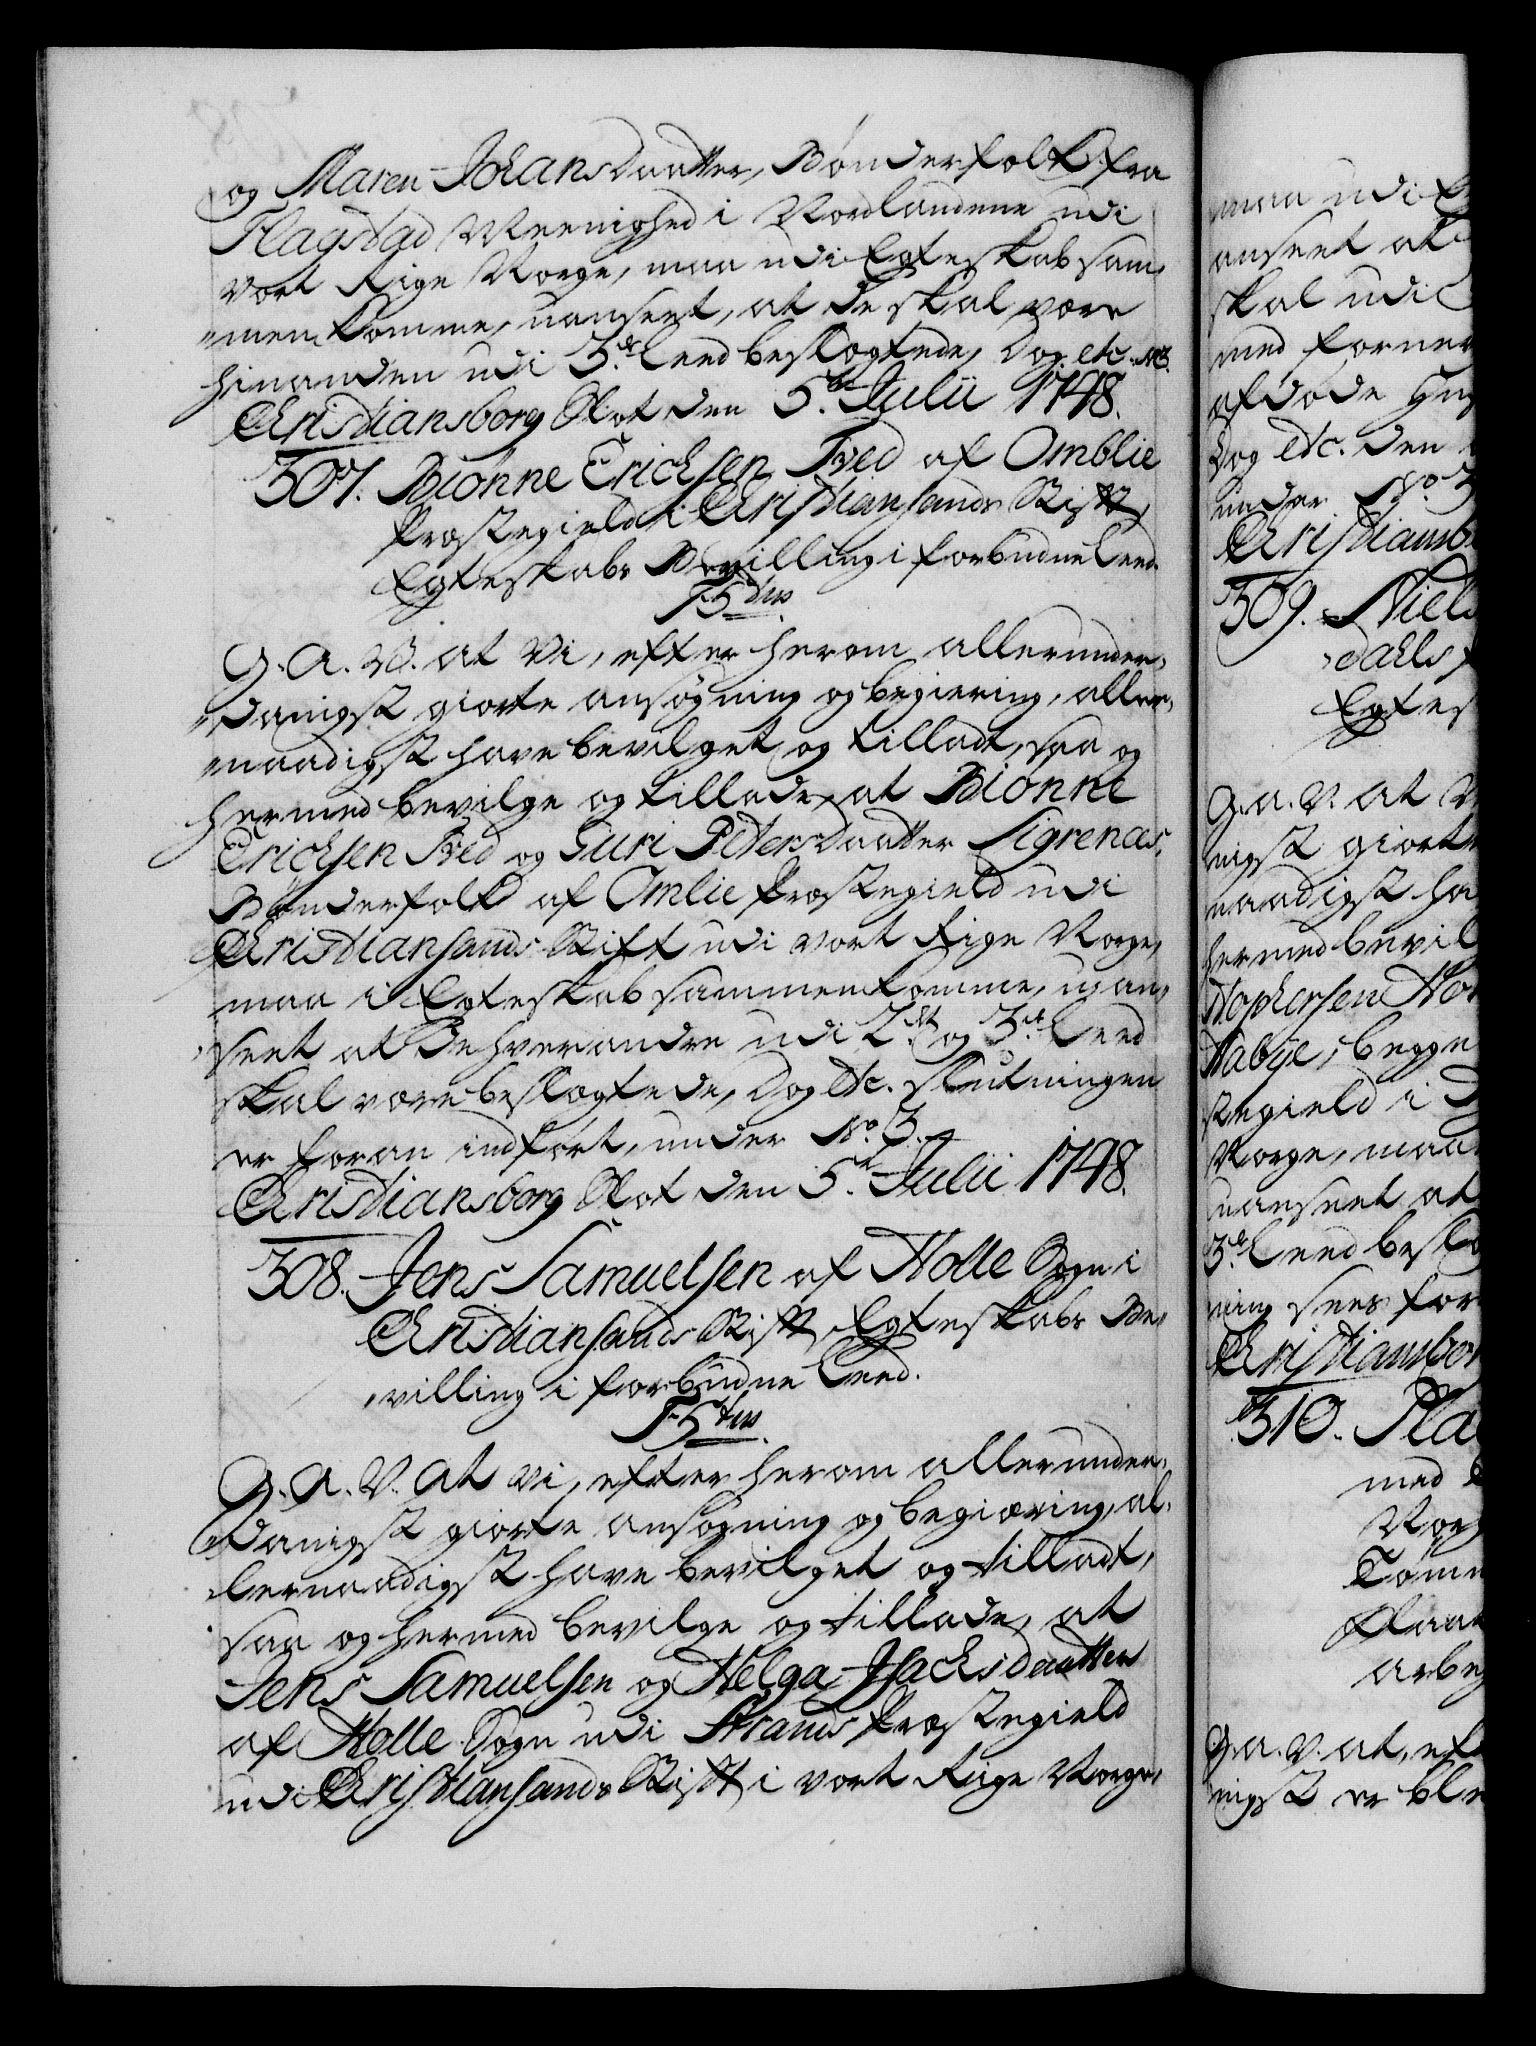 og Maren Johansdaatter, Bønderfolk fra
Flagstad Meenighed i Nordlandene udi
vort Rige Norge, maa udi Egteskab sam-
menkomme, uanseet, at de skal være
hinanden udi 3de Leed beslægtede, Dog etc.
Christiansborg Slot den 5te Julii 1748.
307. Biönne Ericksen Tved af Omblie
Præstegield i Christiansands Stift,
Egteskabs Bevilling i forbudne Leed.
F5tus
G. A. V. at Vi, efter herom allerunder-
danigst giorte ansøgning og begiering, aller-
naadigst have bevilget og tilladt, saa og
hermed bevilge og tillade, at Biönne
Ericksen Tved og Guri Petersdaatter Sigrenæs,
Bønderfolk af Omlie Præstegield udi
Christiansands Stift udi vort Rige Norge,
maa i Egteskab sammenkomme, uan-
seet at de hverandre udi 2det og 3die Leed
skal være beslægtede, Dog etc. Slutningen
er foran indfört, under No. 3.
Christiansborg Slot den 5te Julii 1748.
308. Jens Samuelsen af Holle Sogn i
Christiansands Stift, Egteskabs Be-
villing i forbudne Leed.
F5tus
G. A. V. at vi, efter herom allerunder-
danigst giorte ansøgning og begiæring, al-
lernaadigst have bevilget og tilladt,
saa og hermed bevilge og tillade, at
Jens Samuelsen og Helga Isachsdaatter
af Holle Sogn udi Strands Præstegield
udi Christiansands Stift i vort Rige Norge,
maa udi E
anseet at
skal udi
med forne
afdöde Hu
Dog etc. den
under No. 3
Christiansb
309. Niels
dahls
Egtes
G. A. V. at V
nigst giort
naadigst ha
hermed bevil
stophersen Ho
Habye, begge
stegield i
Norge, maa
uanseet at
3de Leed beslæ
ning sees for
Christiansbor
310. Pla
med
Norg
Tömm
Flaa
arbe
G. A. V. at, eft
nigst er ble